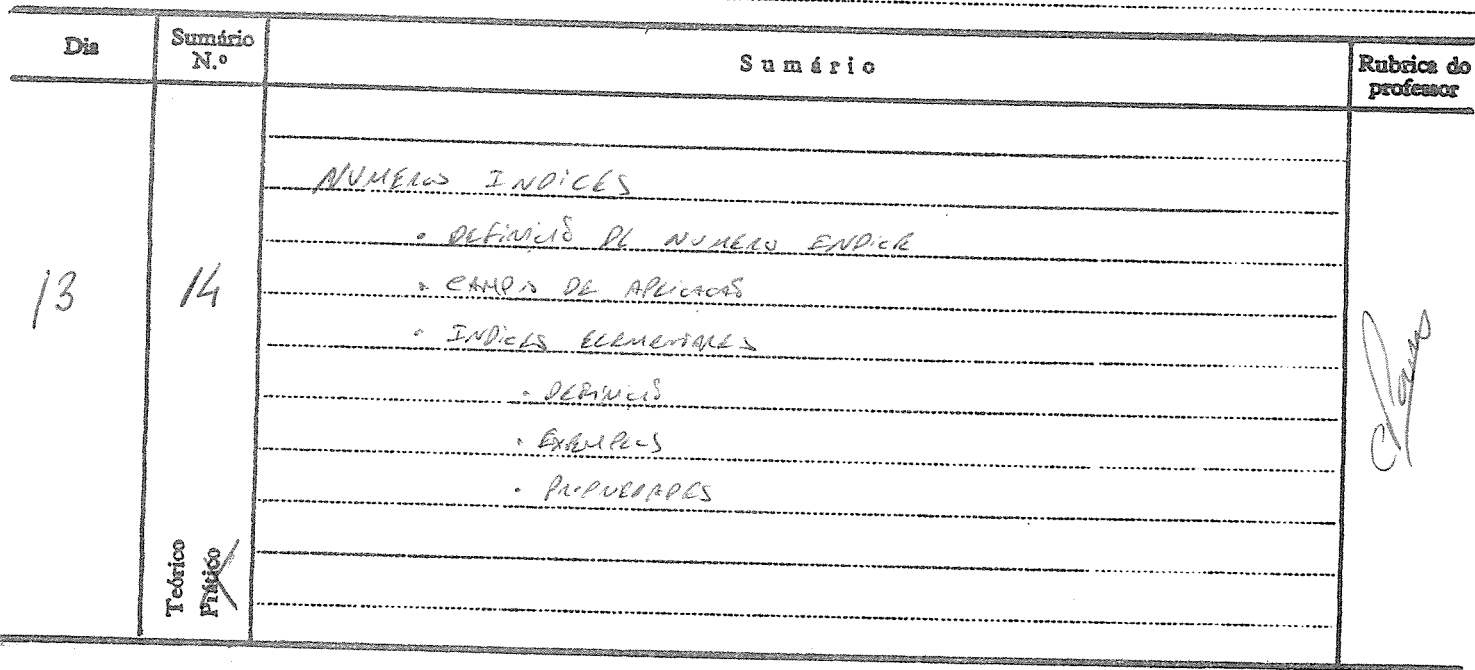 Dia Sumário N.º Sumário Rubrica do professor
NUMEROS INDICES
• DEFINIÇÃO DE NUMERO INDICE
• CAMPOS DE APLICAÇÃO
13 14
• INDICES ELEMENTARES
• DEFINIÇÃO
• EXEMPLOS
• PROPRIEDADES
Teórico
Prático